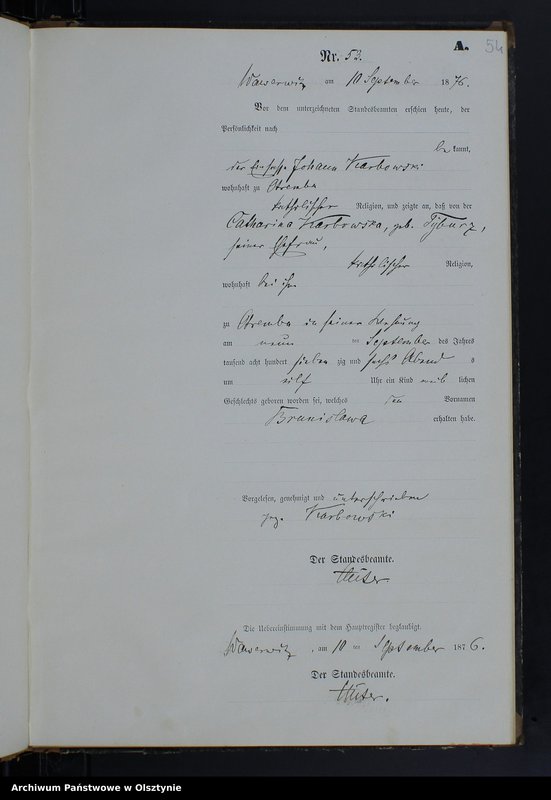 A. 54
Nr. 52.
Wawerwitz am 10 September 1876.
Vor dem unterzeichneten Standesbeamten erschien heute, der
Persönlichkeit nach
be kannt,
der Johann Karbowski
wohnhaft zu Otremba
katholischer Religion, und zeigte an, daß von der
Catharina Karbowska, geb. Tyburz,
seiner Ehefrau,
katholischer Religion,
wohnhaft bei ihm
zu Otremba in seiner Wohnung
am neun ten September des Jahres
tausend acht hundert sieben zig und sechs Abend s
um eilf Uhr ein Kind weib lichen
Geschlechts geboren worden sei, welches den Vornamen
Bronislawa erhalten habe.
Vorgelesen, genehmigt und unterschrieben
gez. Karbowski
Der Standesbeamte.
Die Uebereinstimmung mit dem Hauptregister beglaubigt.
Wawerwitz, am 10 ten September 1876.
Der Standesbeamte.
Archiwum Państwowe w Olsztynie